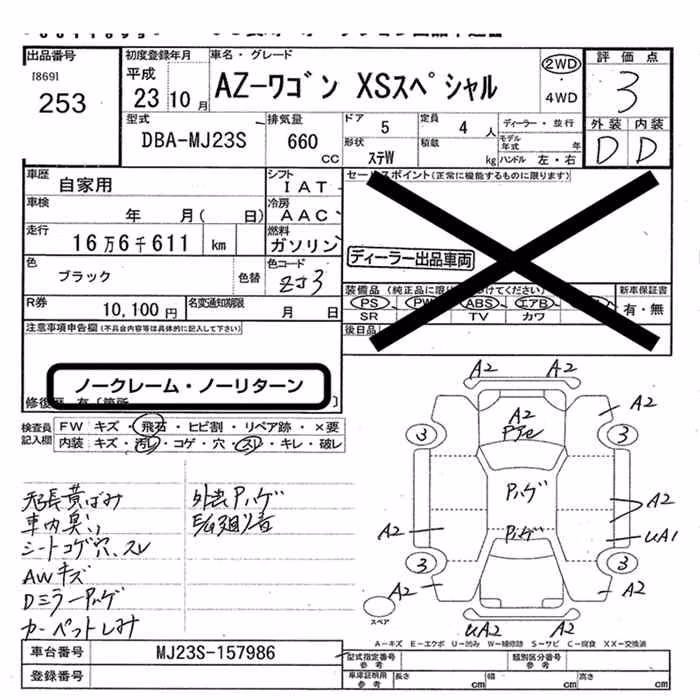 出品番号
I869I
253
初度登録年月
平成
23 10 月
車名・グレード
AZ-ワゴン XSスペシャル
2WD
4WD
評価点
3
外装 内装
D D
型式
DBA-MJ23S
排気量
660
CC
ドア 5
定員 4 人
ディーラー・並行
形状 ステW
積載 kg
モデル年式 年
ハンドル 左・右
車歴 自家用
シフト
IAT
車検 年 月( 日)
冷房
AAC
走行 16万6千611 km
燃料
ガソリン
色 ブラック 色替
色コード
ZJ3
R券 10,100円
名変通知期限 月 日
セールスポイント(正常に機能するものに限ります)
ディーラー出品車両
装備品
PS PW ABS エアB
SR TV カワ
新車保証書
有・無
後日品
注意事項申告欄(不具合内容等は具体的に記入して下さい)
ノークレーム・ノーリターン
検査員記入欄
FW キズ・飛石・ヒビ割・リペア跡・×要
内装 キズ・汚レ・コゲ・穴・スレ・キレ・破レ
天張黄ばみ
車内臭い
シートコゲ穴、スレ
AWキズ
Dミラーハゲ
カーペットしみ
A2
A2
A2
A2
3
3
ハゲ
A2
A2
UA1
ハゲ
3
3
A2
A2
UA2
A2
スペア
A-キズ E-エクボ U-凹み W-補修跡 S-サビ C-腐食 XX-交換済
車台番号 MJ23S-157986
登録番号
型式指定番号
参考
類別区分番号
参考
車庫証明用
参考
長さ cm
幅 cm
高さ cm